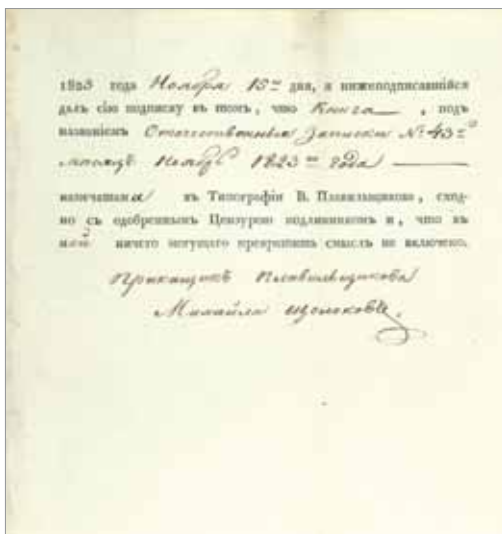 1823 года Ноября 15го дня, я нижеподписавшійся
далъ сію подписку въ томъ, что Книга, подъ
названіемъ Отечественныя Записки № 43й
мѣсяцъ Ноябрь 1823го года
напечатана въ Типографіи В. Плавильщикова, сход-
но съ одобреннымъ Цензурою подлинникомъ и, что въ
ней ничего могущаго превратить смыслъ не включено.
Прикащикъ Плавильщикова
Михайла